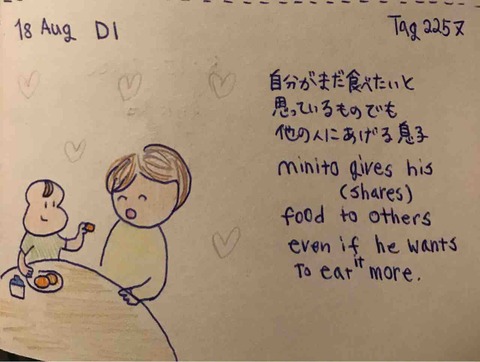 18 Aug DI
Tag 2257
自分がまだ食べたいと
思っているものでも
他の人にあげる息子
minito gives his
(shares)
food to others
even if he wants
to eat it more.